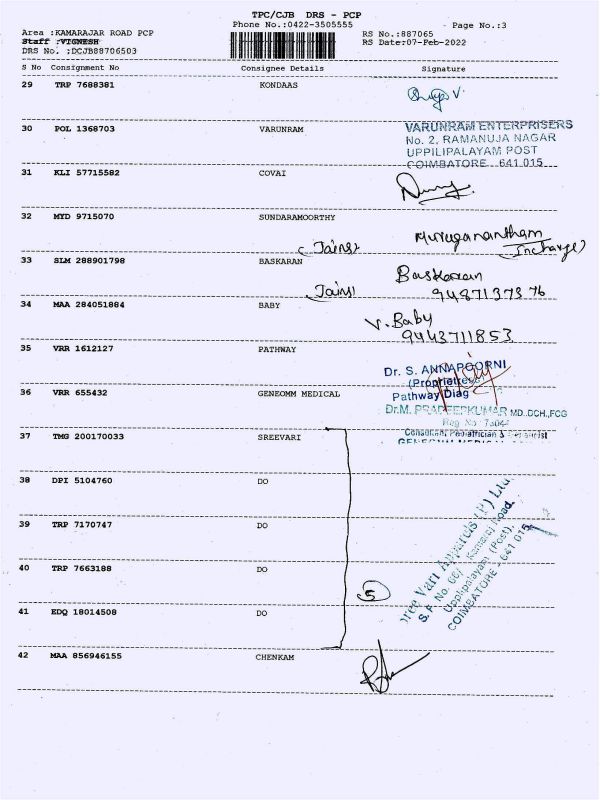 TPC/CJB DRS - PCP
Phone No.:0422-3505555
Page No.:3
Area :KAMARAJAR ROAD PCP
RS No.:887065
Staff :VIGNESH
RS Date:07-Feb-2022
DRS No. :DCJB88706503
S No Consignment No Consignee Details Signature
29 TRP 7688381 KONDAAS
30 POL 1368703 VARUNRAM
VARUNRAM ENTERPRISERS
No. 2, RAMANUJA NAGAR
UPPILIPALAYAM POST
COIMBATORE 641 015
31 KLI 57715582 COVAI
32 MYD 9715070 SUNDARAMOORTHY
Muruganantham
(Incharge)
33 SLM 288901798 BASKARAN
Baskaran
9487137376
34 MAA 284051884 BABY
V. Baby
9443711853
35 VRR 1612127 PATHWAY
Dr. S. ANNAPOORNI
(Proprietress)
Pathway Diag
36 VRR 655432 GENEOMM MEDICAL
Dr.M. PRADEEPKUMAR MD.DCH.,FCG
Reg No
Consultant Paediatrician &
37 TMG 200170033 SREEVARI
38 DPI 5104760 DO
39 TRP 7170747 DO
40 TRP 7663188 DO
5
Sree Vari Apparels (P) Ltd.
S.F. No. 66/ Kamaraj Road,
Uppilipalayam (Post),
COIMBATORE - 641 015
41 EDQ 18014508 DO
42 MAA 856946155 CHENKAM